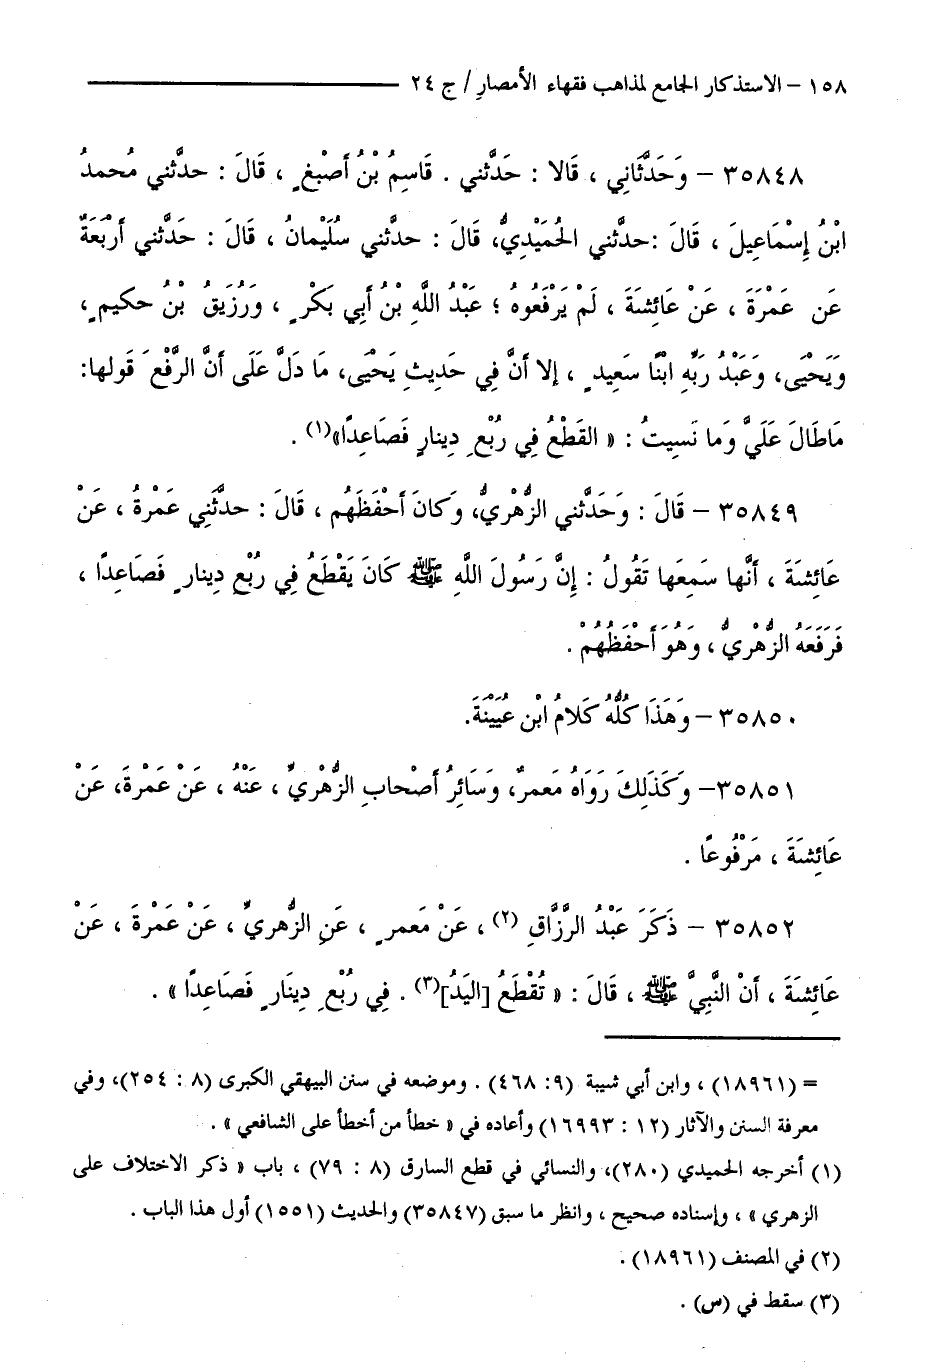 ١٥٨ – الاستذكار الجامع لمذاهب فقهاء الأمصارِ / ج ٢٤
٣٥٨٤٨ – وَحَدَّثَانِي ، قَالا : حَدَّثني . قَاسِمُ بْنُ أَصْبَغٍ ، قَالَ : حدثَّني محمدُ
ابْنُ إِسْمَاعِيلَ ، قَالَ :حدثَّني الحُمَيْدِيُّ، قَالَ : حدثَّني سُلَيْمانُ ، قَالَ : حَدَّثني أَرْبَعَةٌ
عَن عَمْرَةَ ، عَنْ عَائِشَةَ ، لَمْ يَرْفَعُوهُ ؛ عَبْدُ اللَّهِ بْنُ أَبِي بَكْرٍ ، وَرُزَيقُ بْنُ حكيمٍ ،
وَيَحْيَى، وَعَبْدُ رَبِّهِ ابْنَا سَعِيدٍ ، إلا أنَّ فِي حَدِيثِ يَحْيَى، مَا دَلَّ عَلَى أنَّ الرَّفْعَ قَولها:
مَاطَالَ عَلَيَّ وَما نَسِيتُ : « القَطْعُ فِي رُبْعِ دِينارٍ فَصَاعِدًا»(١) .
٣٥٨٤٩ – قَالَ : وَحَدَّثني الزُّهْرِيُّ، وَكَانَ أَحْفَظَهُم ، قَالَ : حدثَّنِي عَمْرةُ ، عَنْ
عَائِشَةَ ، أنَّها سَمِعَها تَقُولُ : إِنَّ رَسُولَ اللَّهِ ﷺ كَانَ يَقْطَعُ فِي رُبْعِ دِينارٍ فَصَاعِدًا ،
فَرَفَعَهُ الزُّهْرِيُّ ، وَهُوَ أَحْفَظُهُمْ .
٣٥٨٥٠ – وَهَذَا كُلُّهُ كَلامُ ابْنِ عُيَيْنَةَ.
٣٥٨٥١– وَكَذَلِكَ رَوَاهُ مَعمرٌ، وَسَائِرُ أَصْحابِ الزُّهْرِيِّ ، عَنْهُ ، عَنْ عَمْرَةَ، عَنْ
عَائِشَةَ ، مَرْفُوعًا .
٣٥٨٥٢ – ذَكَرَ عَبْدُ الرَّزَّاقِ (٢) ، عَنْ مَعمرٍ ، عَنِ الزُّهريِّ ، عَنْ عَمْرةَ ، عَنْ
عَائِشَةَ ، أنْ النَّبِيَّ ﷺ ، قَالَ : « تُقْطَعُ [اليَدُ](٣) . فِي رُبْعِ دِينَارٍ فَصَاعِدًا » .
= (١٨٩٦١) ، وابن أبي شيبة (٩: ٤٦٨) . وموضعه في سنن البيهقي الكبرى (٨ : ٢٥٤)، وفي
معرفة السنن والآثار (١٢ : ١٦٩٩٣) وأعاده في « خطأ من أخطأ على الشافعي » .
(١) أخرجه الحميدي (٢٨٠)، والنسائي في قطع السارق (٨ : ٧٩) ، باب « ذكر الاختلاف على
الزهري » ، وإسناده صحيح ، وانظر ما سبق (٣٥٨٤٧) والحديث (١٥٥١) أول هذا الباب .
(٢) في المصنف (١٨٩٦١) .
(٣) سقط في (س) .